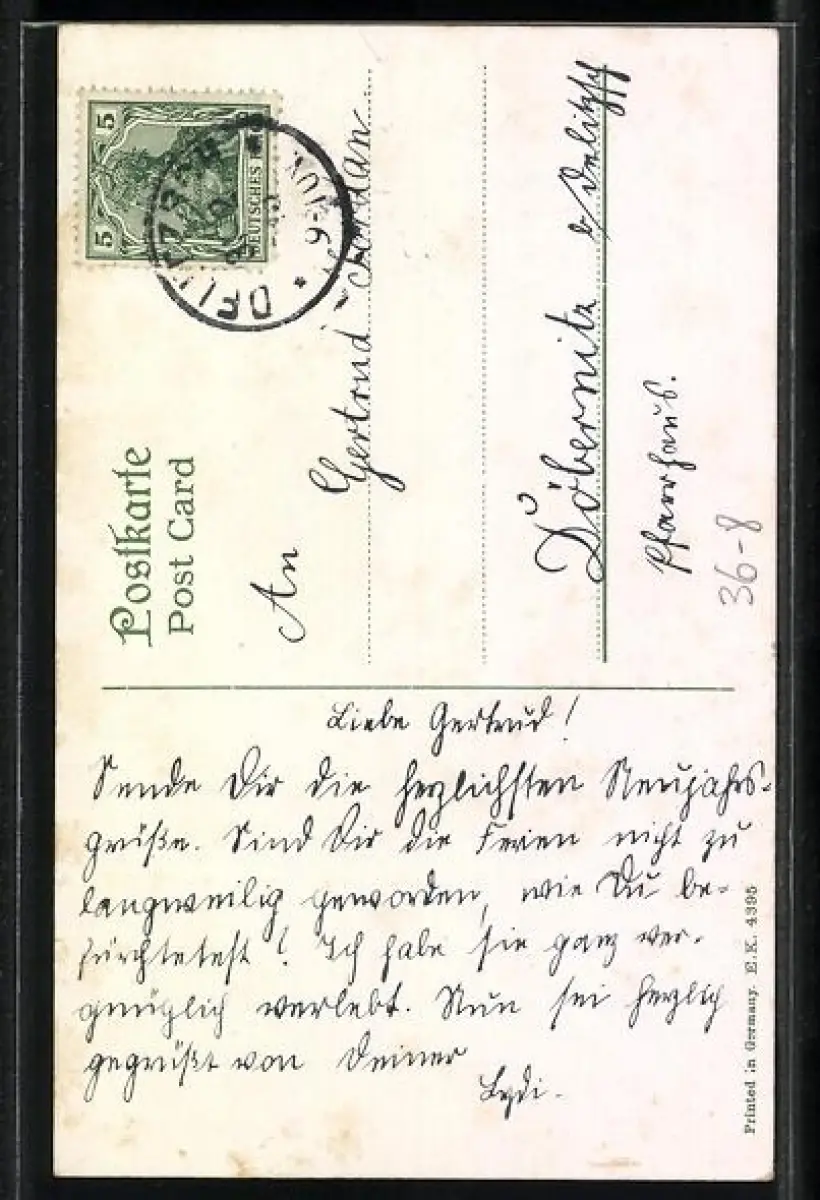 Postkarte
Post Card
5
5
DEUTSCHES
An
Gertrud
Döbernitz b/Delitzsch
Pfarrhaus.
36-8
Liebe Gertrud!
Sende Dir die herzlichsten Neujahrs-
grüße. Sind Dir die Ferien nicht zu
langweilig geworden, wie Du be-
fürchtetest! Ich habe sie ganz ver-
gnüglich verlebt. Nun sei herzlich
gegrüßt von Deiner
Lydi.
Printed in Germany. E.K. 4395